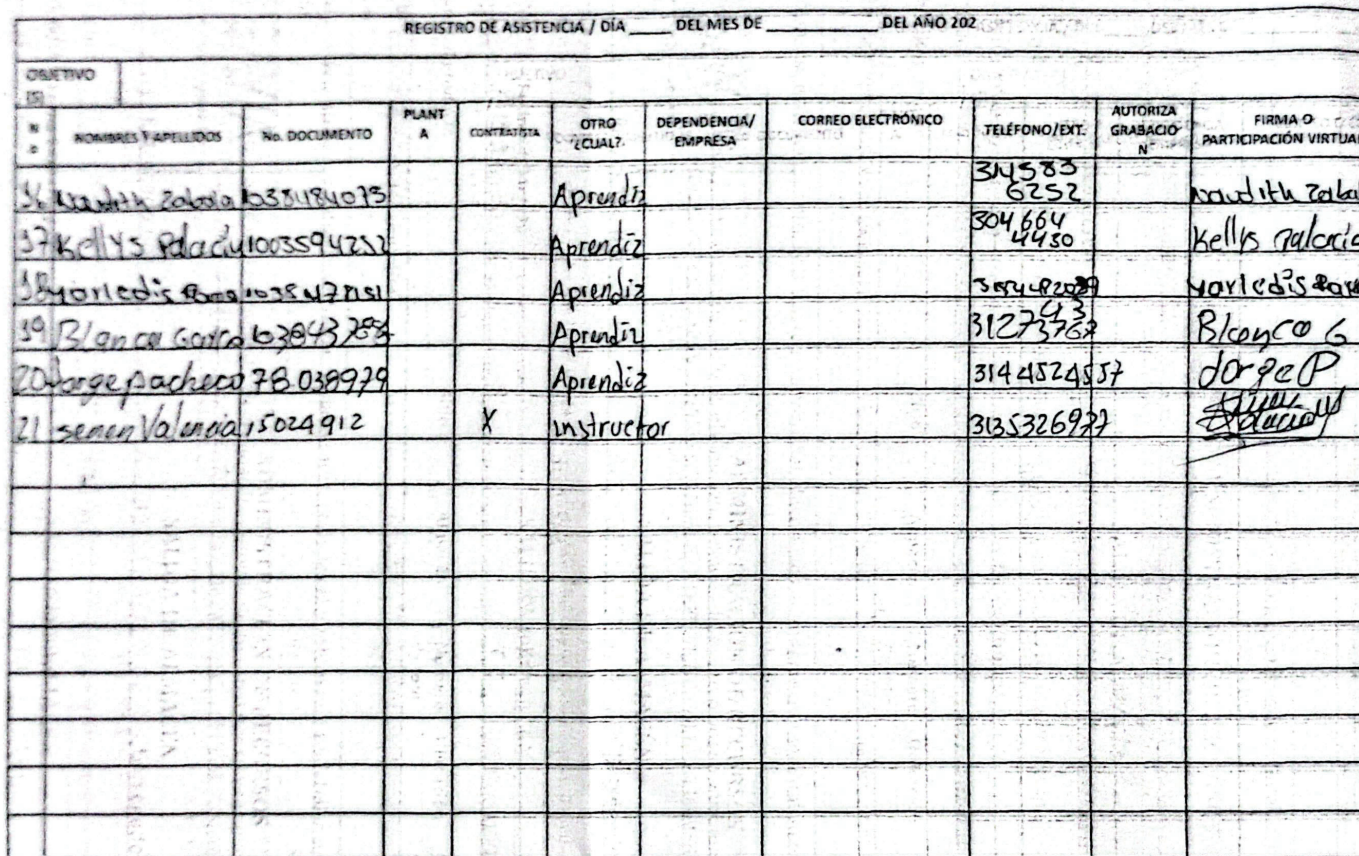 REGISTRO DE ASISTENCIA / DÍA _____ DEL MES DE _____________ DEL AÑO 202
OBJETIVO
(S)
N
o
NOMBRES Y APELLIDOS No. DOCUMENTO PLANT
A CONTRATISTA OTRO
¿CUAL? DEPENDENCIA/
EMPRESA CORREO ELECTRÓNICO TELÉFONO/EXT. AUTORIZA
GRABACIO
N FIRMA O
PARTICIPACIÓN VIRTUAL
Aprendiz 314583
6252
17 Kellys Palaciu 1003594252 Aprendiz 304 664
4430 Kellys palacio
18 Yorledis Aprendiz Yorledis
19 Blanca Aprendiz Blanca G
20 Jorge pacheco 78.038979 Aprendiz 3144524557 Jorge P
21 senen Valencia 15024912 X instructor 3135326977